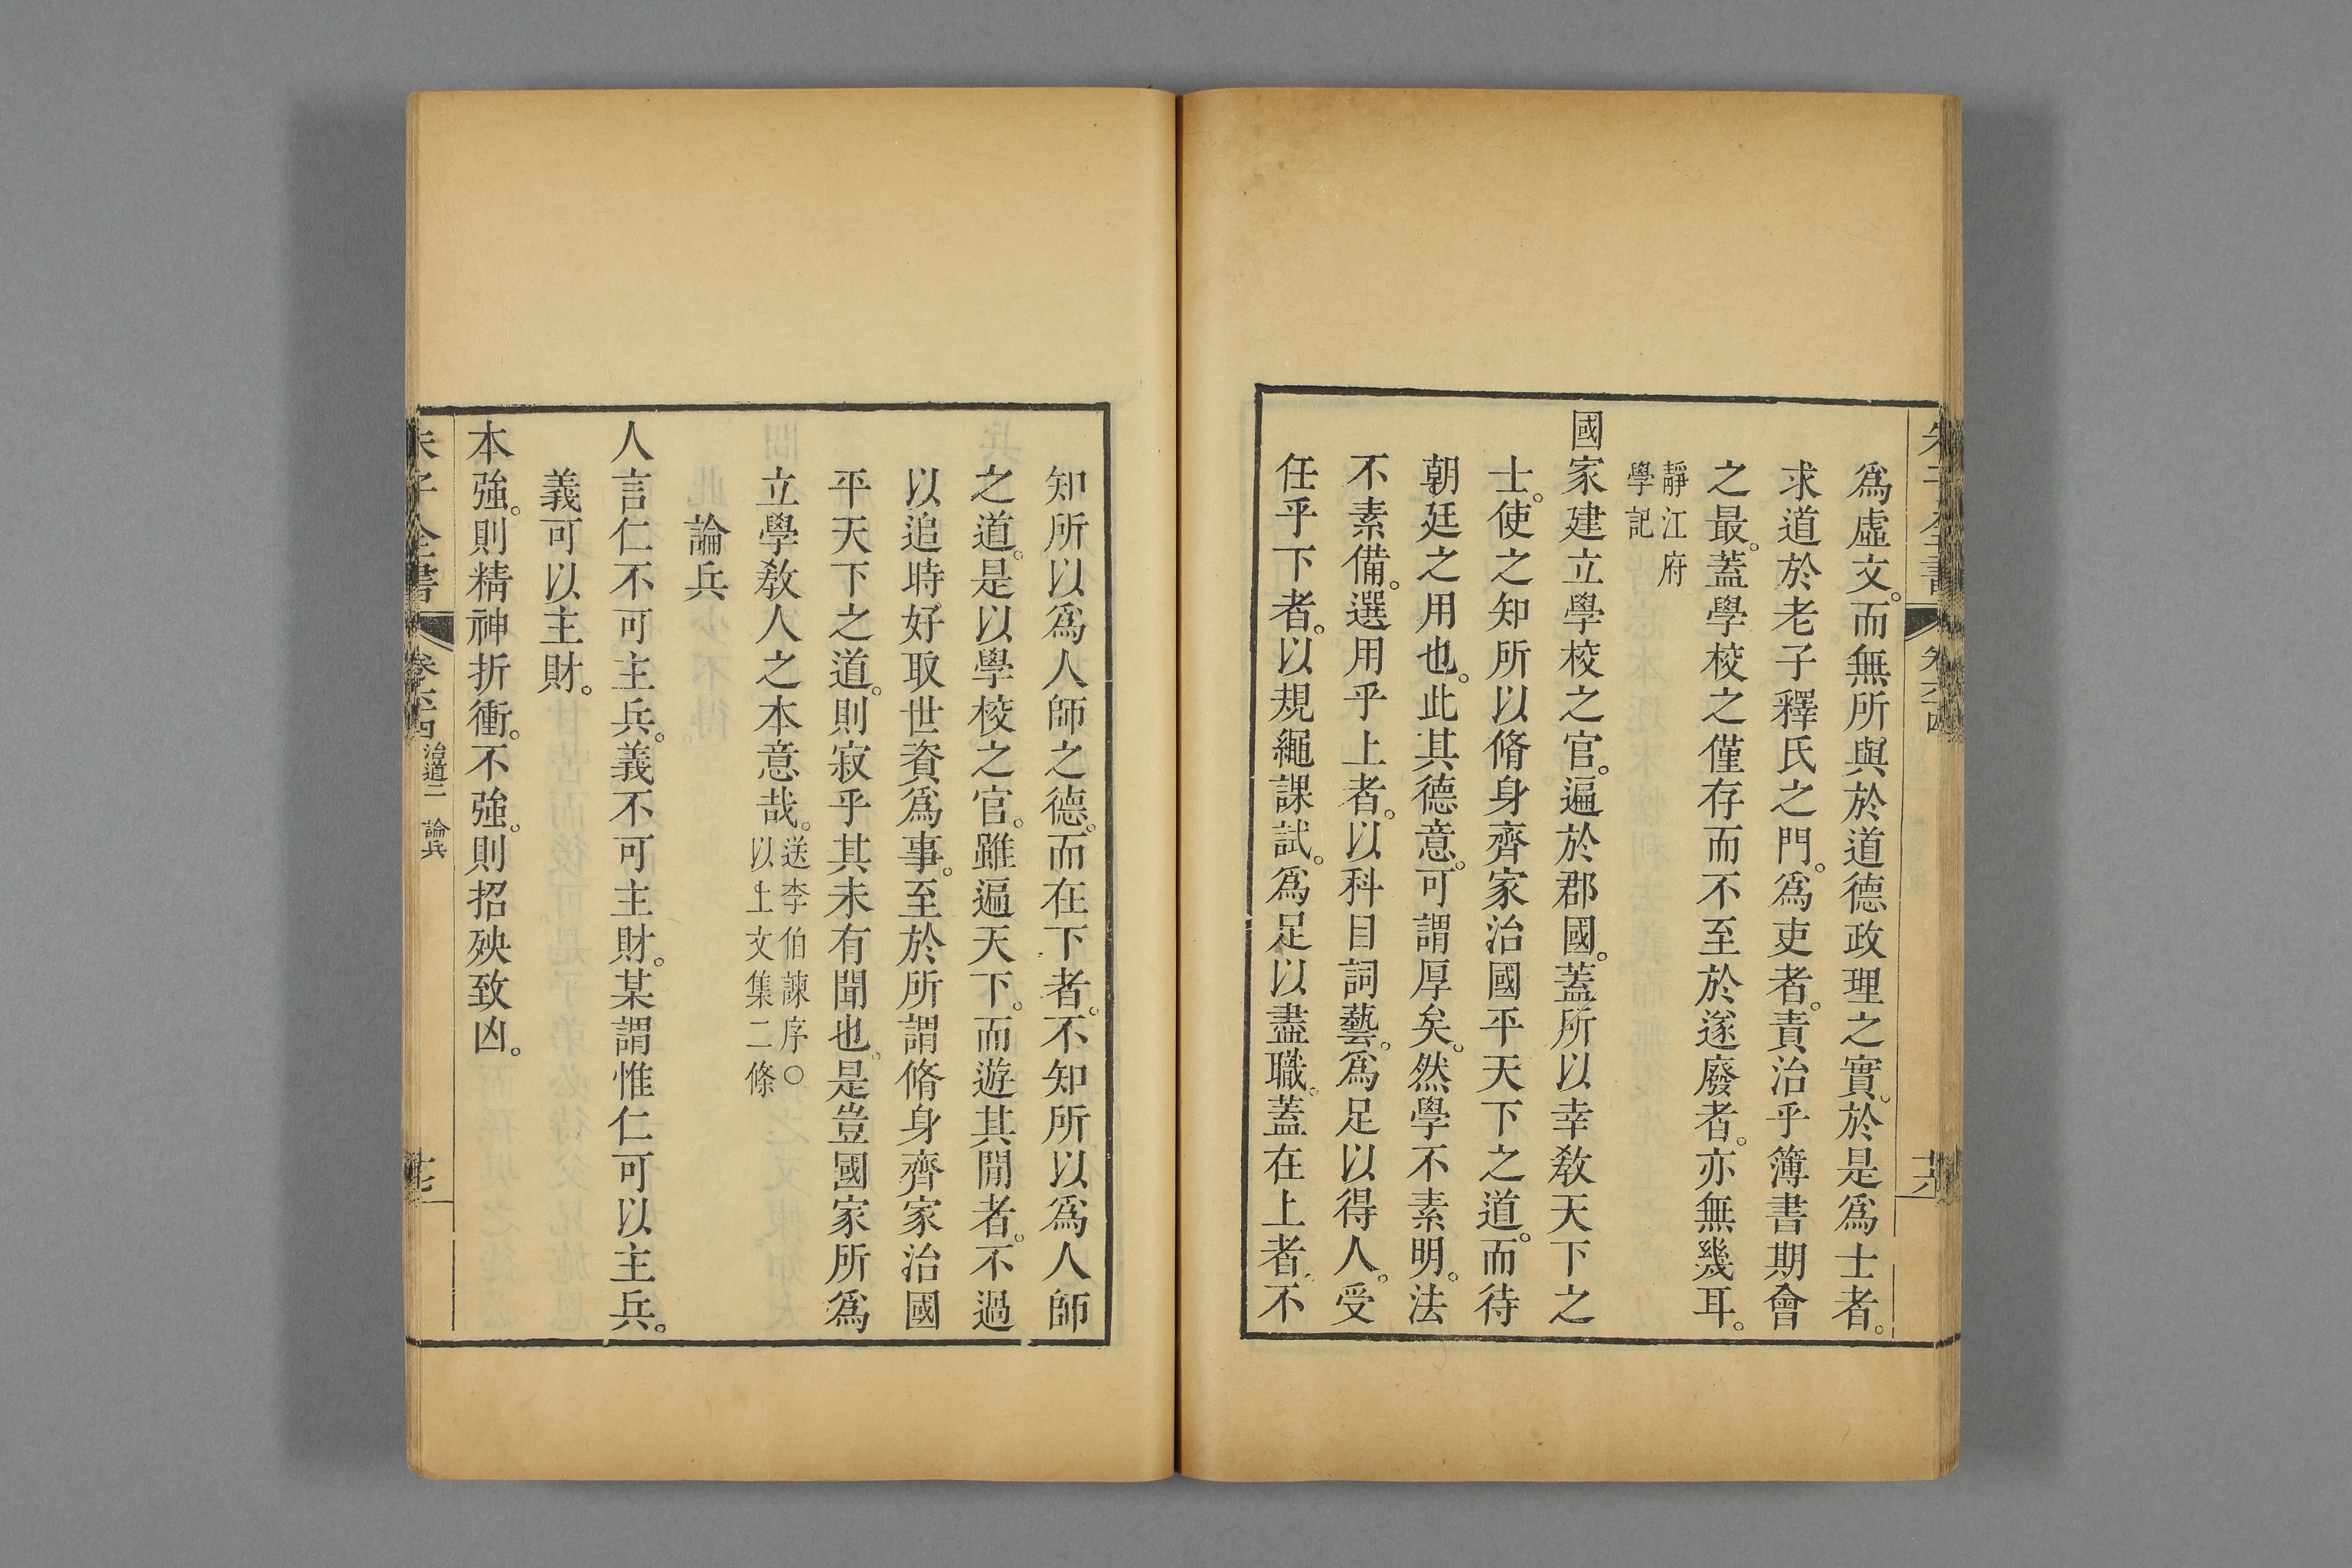 爲虛文。而無所與於道德政理之實。於是爲士者。
求道於老子釋氏之門。爲吏者。責治乎簿書期會
之最。蓋學校之僅存而不至於遂廢者。亦無幾耳。
靜江府
學記
國家建立學校之官。遍於郡國。蓋所以幸敎天下之
士。使之知所以脩身齊家治國平天下之道。而待
朝廷之用也。此其德意。可謂厚矣。然學不素明。法
不素備。選用乎上者。以科目詞藝。爲足以得人。受
任乎下者。以規繩課試。爲足以盡職。蓋在上者。不
知所以爲人師之德。而在下者。不知所以爲人師
之道。是以學校之官。雖遍天下。而遊其閒者。不過
以追時好取世資爲事。至於所謂脩身齊家治國
平天下之道。則寂乎其未有聞也。是豈國家所爲
立學敎人之本意哉。送李伯諫序○
以上文集二條
論兵
人言仁不可主兵。義不可主財。某謂惟仁可以主兵。
義可以主財。
本強。則精神折衝。不強。則招殃致凶。
朱子全書
卷六十四
治道二 論兵
十七